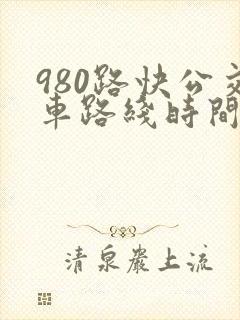 980路快公交
車路綫時間
清泉巖上流